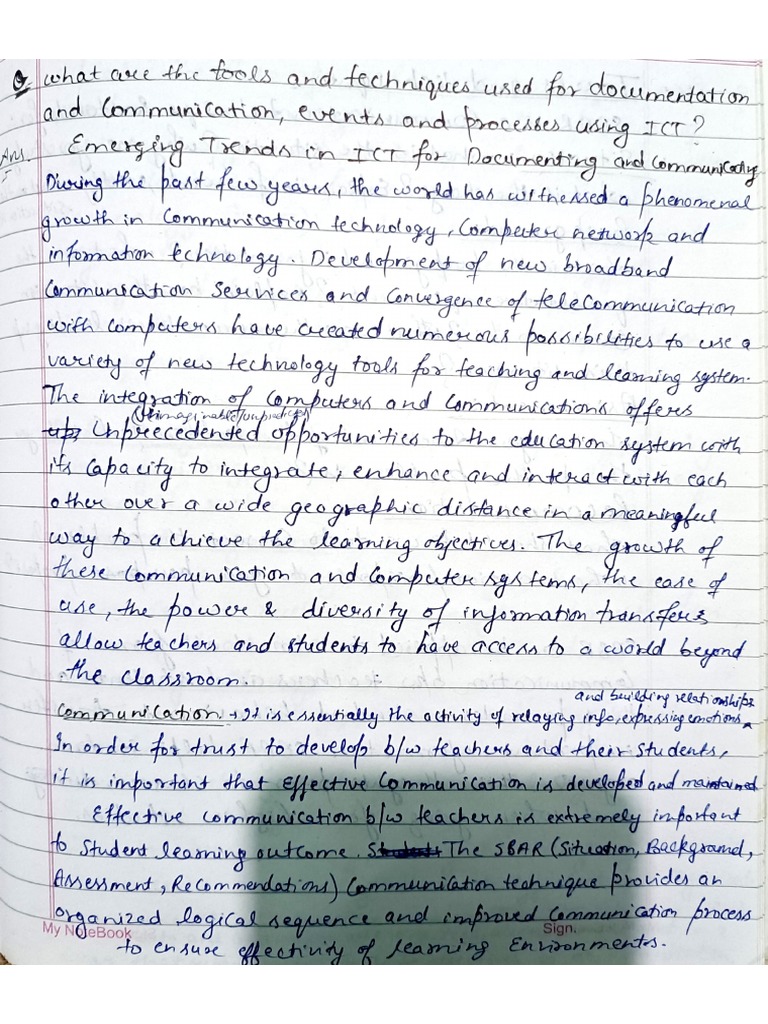 Q What are the tools and techniques used for documentation
and Communication, events and processes using ICT?
Ans. Emerging Trends in ICT for Documenting and Communicating
During the past few years, the world has witnessed a phenomenal
growth in Communication technology, Computer network and
information technology. Development of new broadband
Communication Services and Convergence of telecommunication
with computers have created numerous possibilities to use a
variety of new technology tools for teaching and learning system.
The integration of Computers and Communications offers
(unimaginable/unpredicted)
Unprecedented opportunities to the education system with
its Capacity to integrate, enhance and interact with each
other over a wide geographic distance in a meaningful
way to achieve the learning objectives. The growth of
these Communication and Computer systems, the ease of
use, the power & diversity of information transfer
allow teachers and students to have access to a world beyond
the classroom.
and building relationships
Communication → It is essentially the activity of relaying info, expressing emotions
In order for trust to develop b/w teachers and their students,
it is important that effective Communication is developed and maintained
Effective communication b/w teachers is extremely important
to Student learning outcome. The SBAR (Situation, Background,
Assessment, Recommendations) Communication technique provides an
organized logical sequence and improved Communication process
to ensure effectivity of learning Environments.
My NoteBook
Sign.